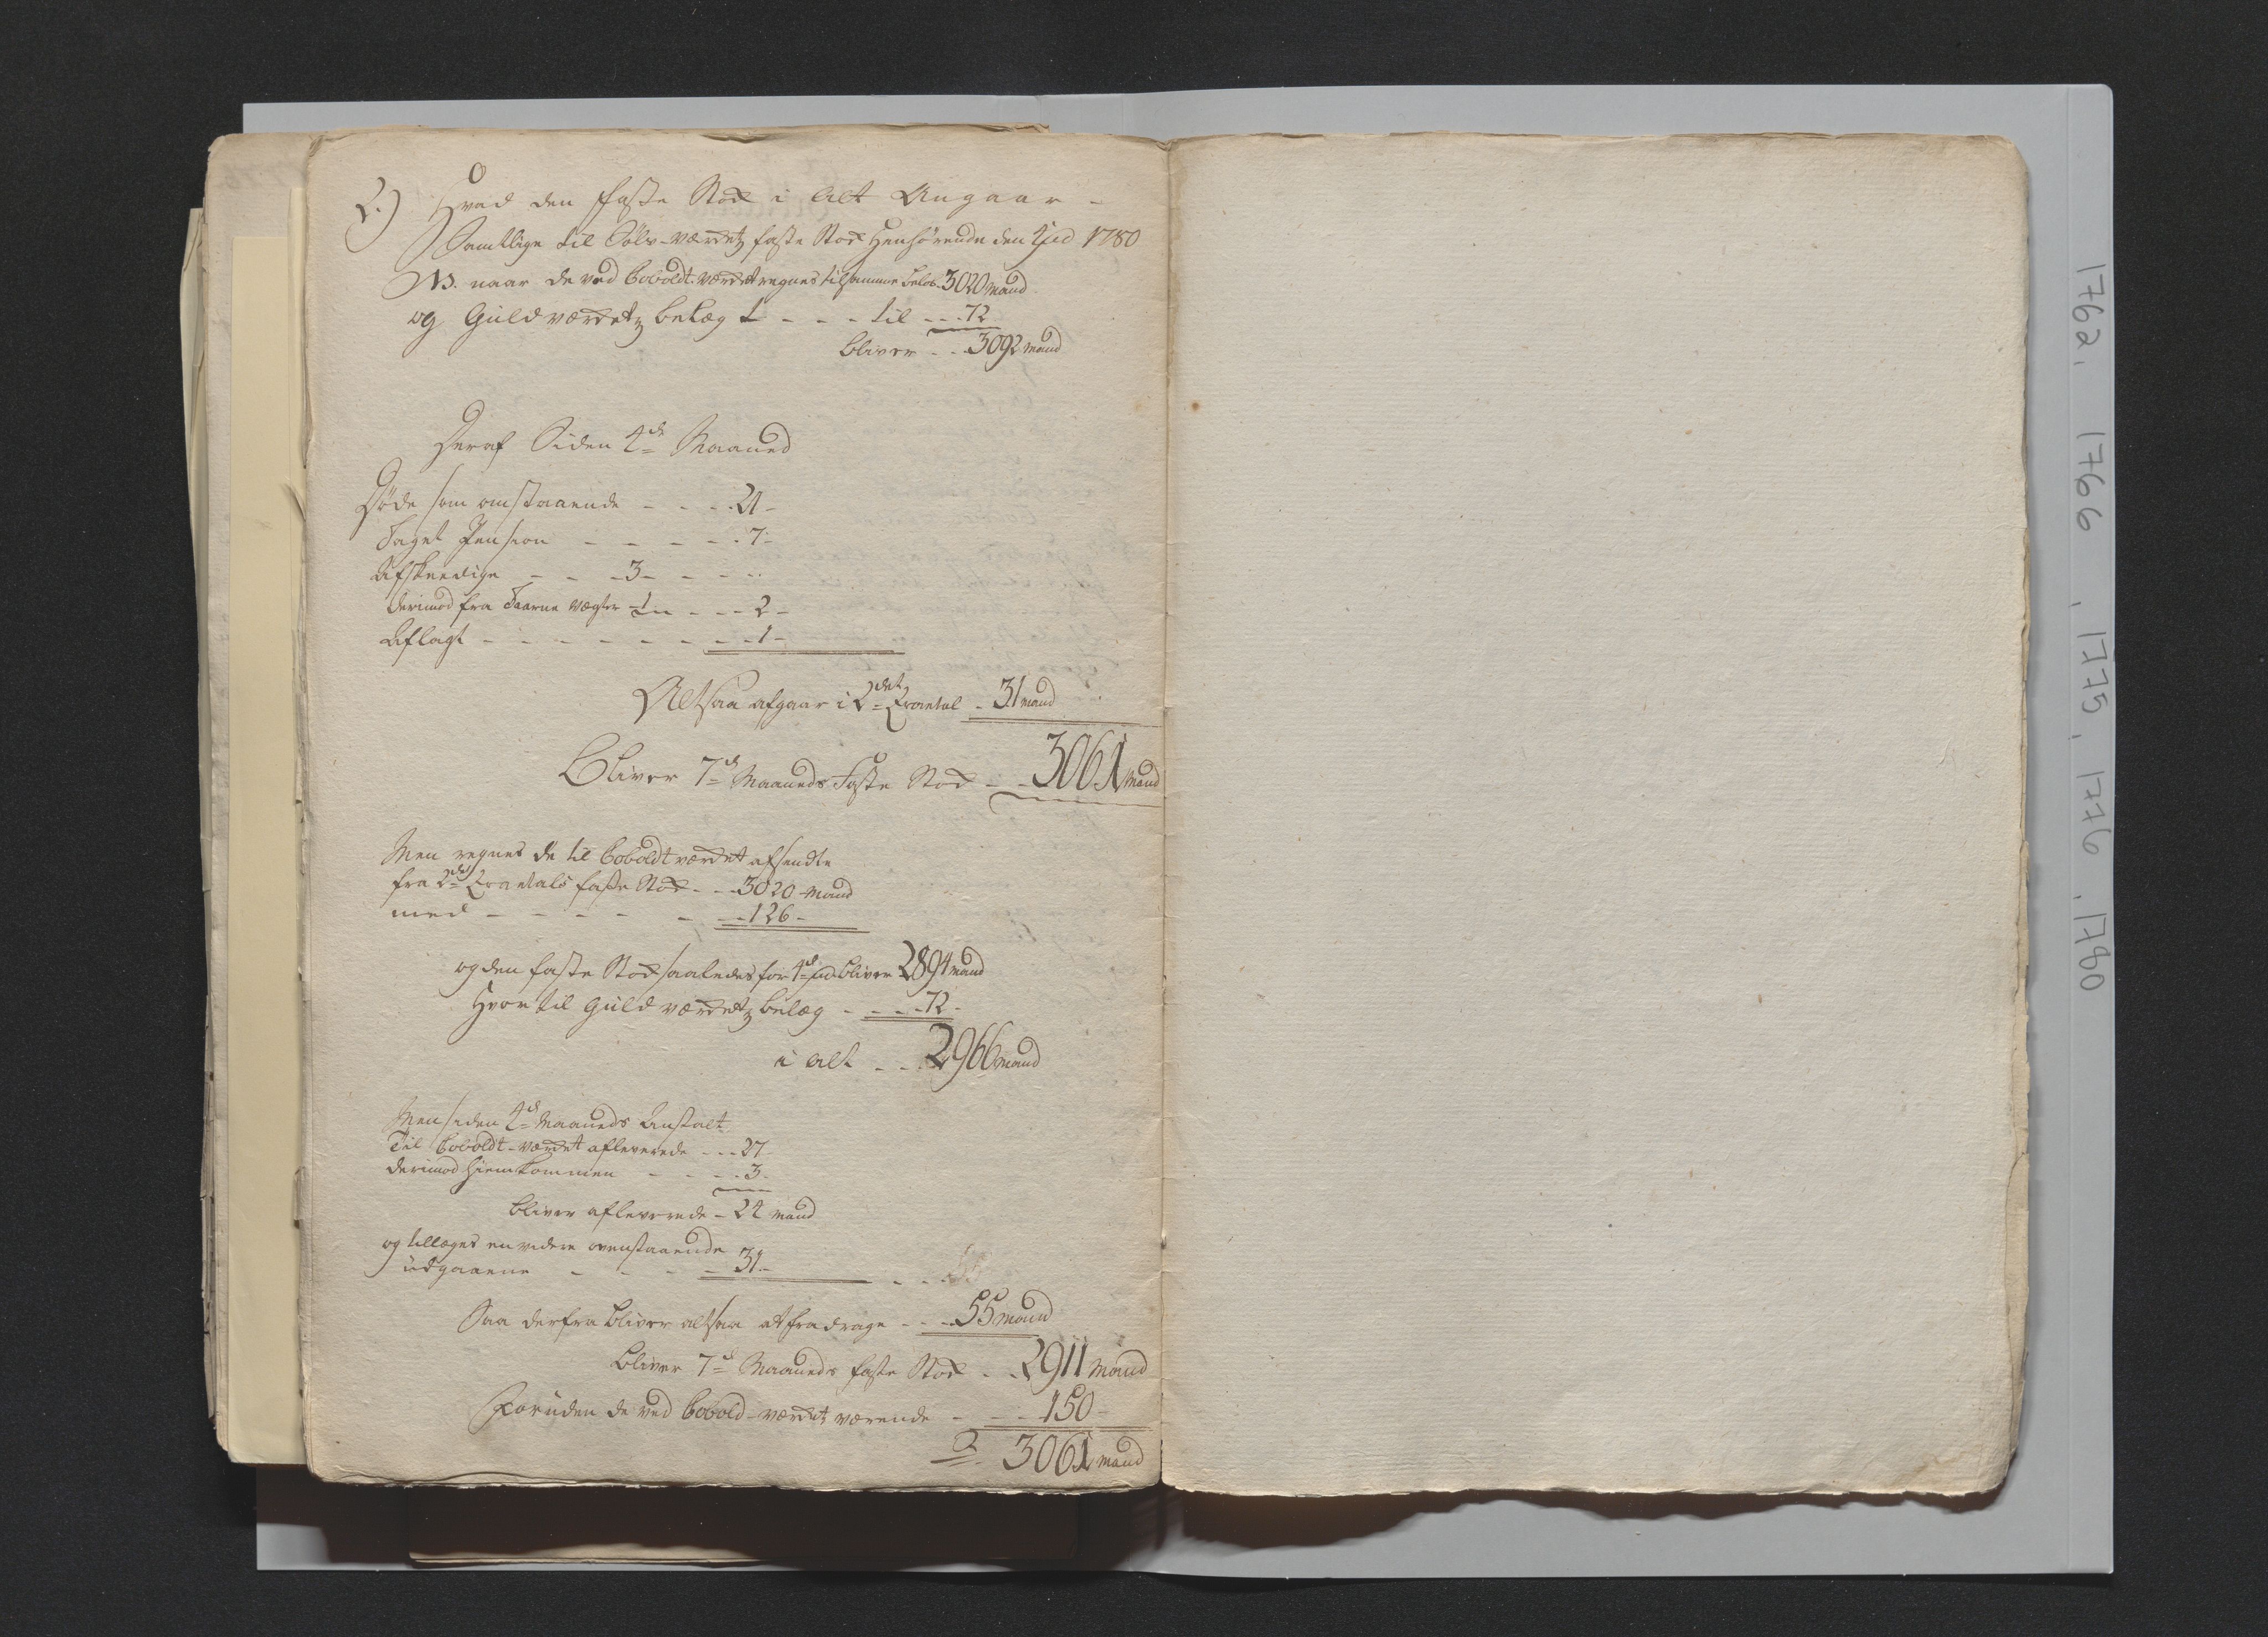 2.) Hvad den faste Stok i alt Angaar -
Samtlige til Sølv-værket faste Stok Henhørende den 4de 1780
NB. naar de ved Coboldt-værket regnes tilsamme beløb 3020 mand
og Guldværkets belægt - - - til - - - 72
bliver - - 3092 mand
Deraf Siden 4de Maaned
Døde som omstaaende - - - 21 -
Taget Pension - - - - - 7 -
Afskeedige - - - 3 - - - -
derimod fra Taarne vægter - 1 - - - - 2 -
Aflagt - - - - - - - - 1 -
Altsaa afgaar i 2det Qvartal - 31 mand
Bliver 7de Maaneds Faste Stok - - 3061 mand
Men regnes de til Coboldtværket afsendte
fra 2det Qvartals faste Stok - - - 3020 mand
med - - - - - - - 126 -
og den faste Stok saaledes for 4de bliver 2894 mand
Hvortil Guldværkets belæg - - - - 72 -
i alt - - . 2966 mand
Men siden 4de Maaneds Anstalt
Til Coboldt-værket afleverede - - - 27 -
derimod Hiemkommen - - - - 3 -
bliver afleverede - 24 mand
og tillæges en videre ovenstaaende
udgaaene - - - - 31 -
Saa derfra bliver altsaa at fradrage - - - 55 mand
bliver 7de Maaneds faste Stok - - 2911 mand
Foruden de ved Cobold-værket værende - - - 150 -
3061 mand
1762. 1766, 1775, 1776, 1780